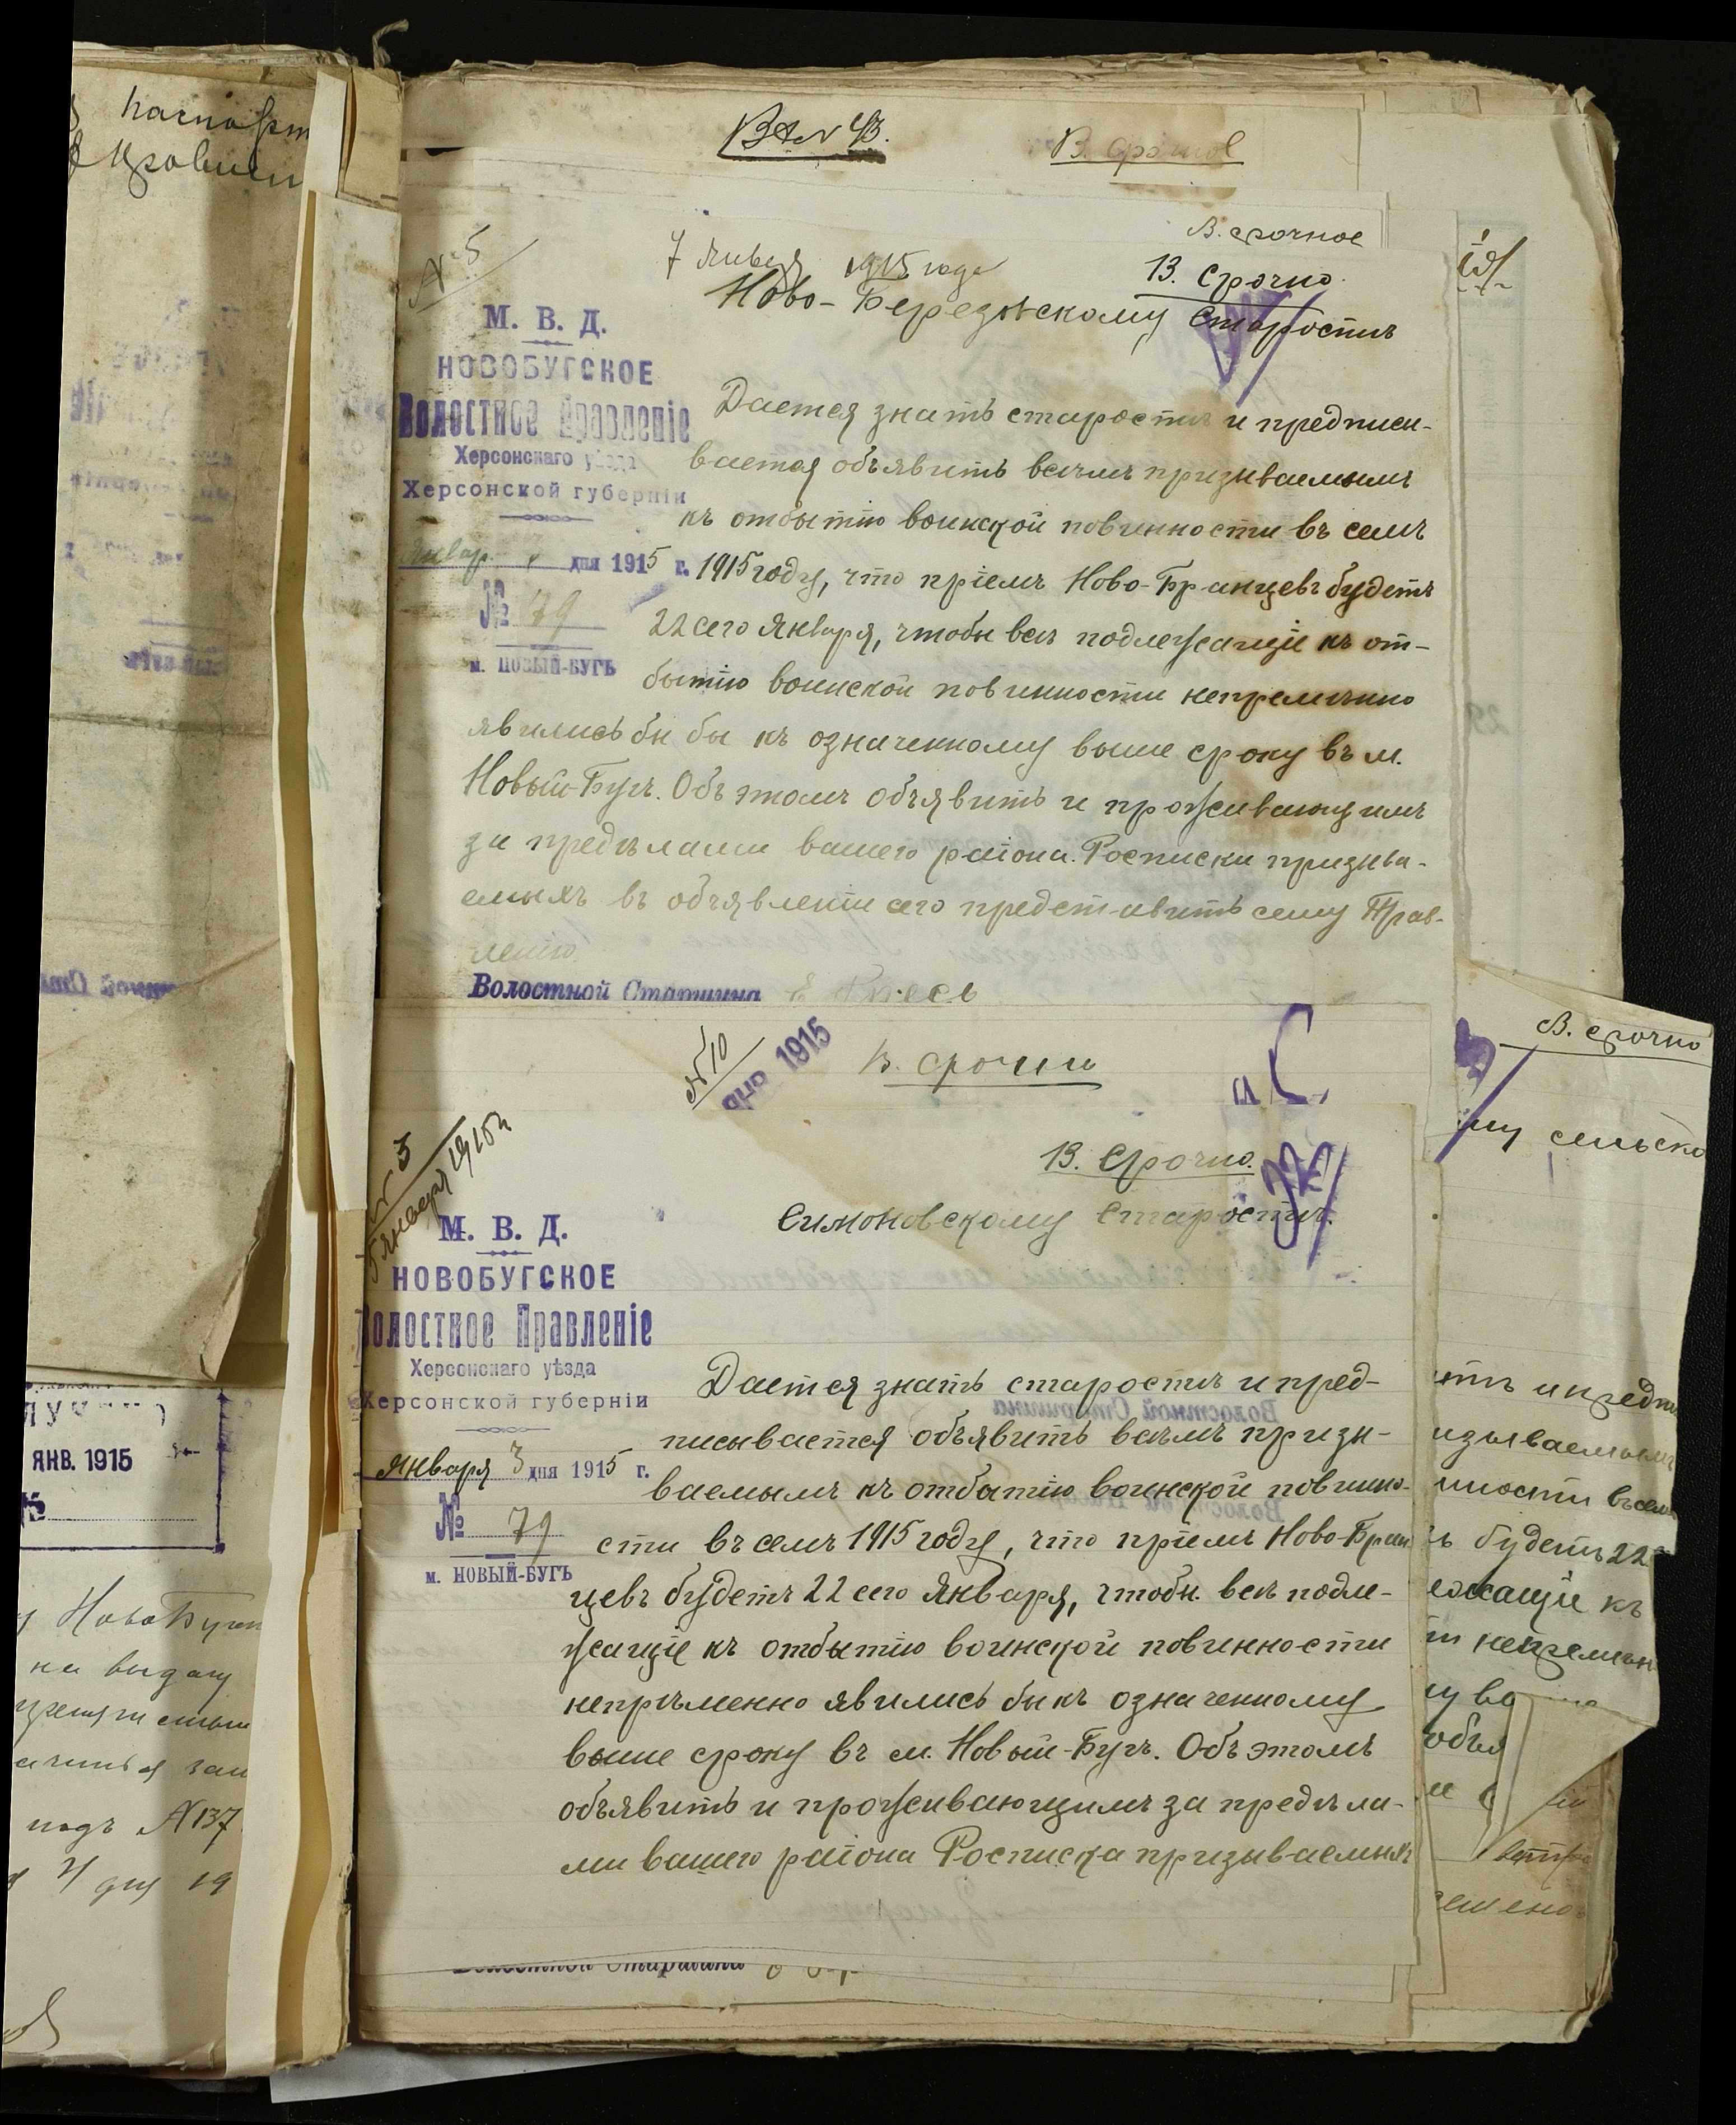 В. срочное
№ 5
7 Января 1915 года
В. Срочно.
Ново-Березовскому Старостѣ
М. В. Д.
НОВОБУГСКОЕ
Волостное Правленіе
Херсонскаго уѣзда
Херсонской губерніи
Январ. дня 1915 г.
№ 79
м. НОВЫЙ-БУГЪ
Дается знать старостѣ и предписы-
вается объявить всѣмъ призываемымъ
къ отбытію воинской повинности въ семъ
1915 году, что пріемъ Ново-Бранцевъ будетъ
22 сего Января, чтобы всѣ подлежащіе къ от-
бытію воинской повинности непремѣнно
явились бы бы къ означенному выше сроку въ м.
Новый-Бугъ. Объ этомъ объявить и проживающимъ
за предѣлами вашего раіона. Росписки призыва-
емыхъ въ объявленіи сего представить сему Прав-
ленію.
Волостной Старшина
№ 10
янв 1915
В. срочно
№ 3
5 Января 1915 г.
В. Срочно.
Симоновскому Старостѣ.
М. В. Д.
НОВОБУГСКОЕ
Волостное Правленіе
Херсонскаго уѣзда
Херсонской губерніи
Января 3 дня 1915 г.
№ 79
м. НОВЫЙ-БУГЪ
Дается знать старостѣ и пред-
писывается объявить всѣмъ призы-
ваемымъ къ отбытію воинской повинно-
сти въ семъ 1915 году, что пріемъ Ново-Бран
цевъ будетъ 22 сего Января, чтобы всѣ подле-
жащіе къ отбытію воинской повинности
непрѣменно явились бы къ означенному
выше сроку въ м. Новый-Бугъ. Объ этомъ
объявить и проживающимъ за предѣла-
ми вашего раіона Росписка призываемыхъ
В. срочно
му сельско
будетъ 22
къ
ЯНВ. 1915
Ново Буг
на выдачу
подъ № 137